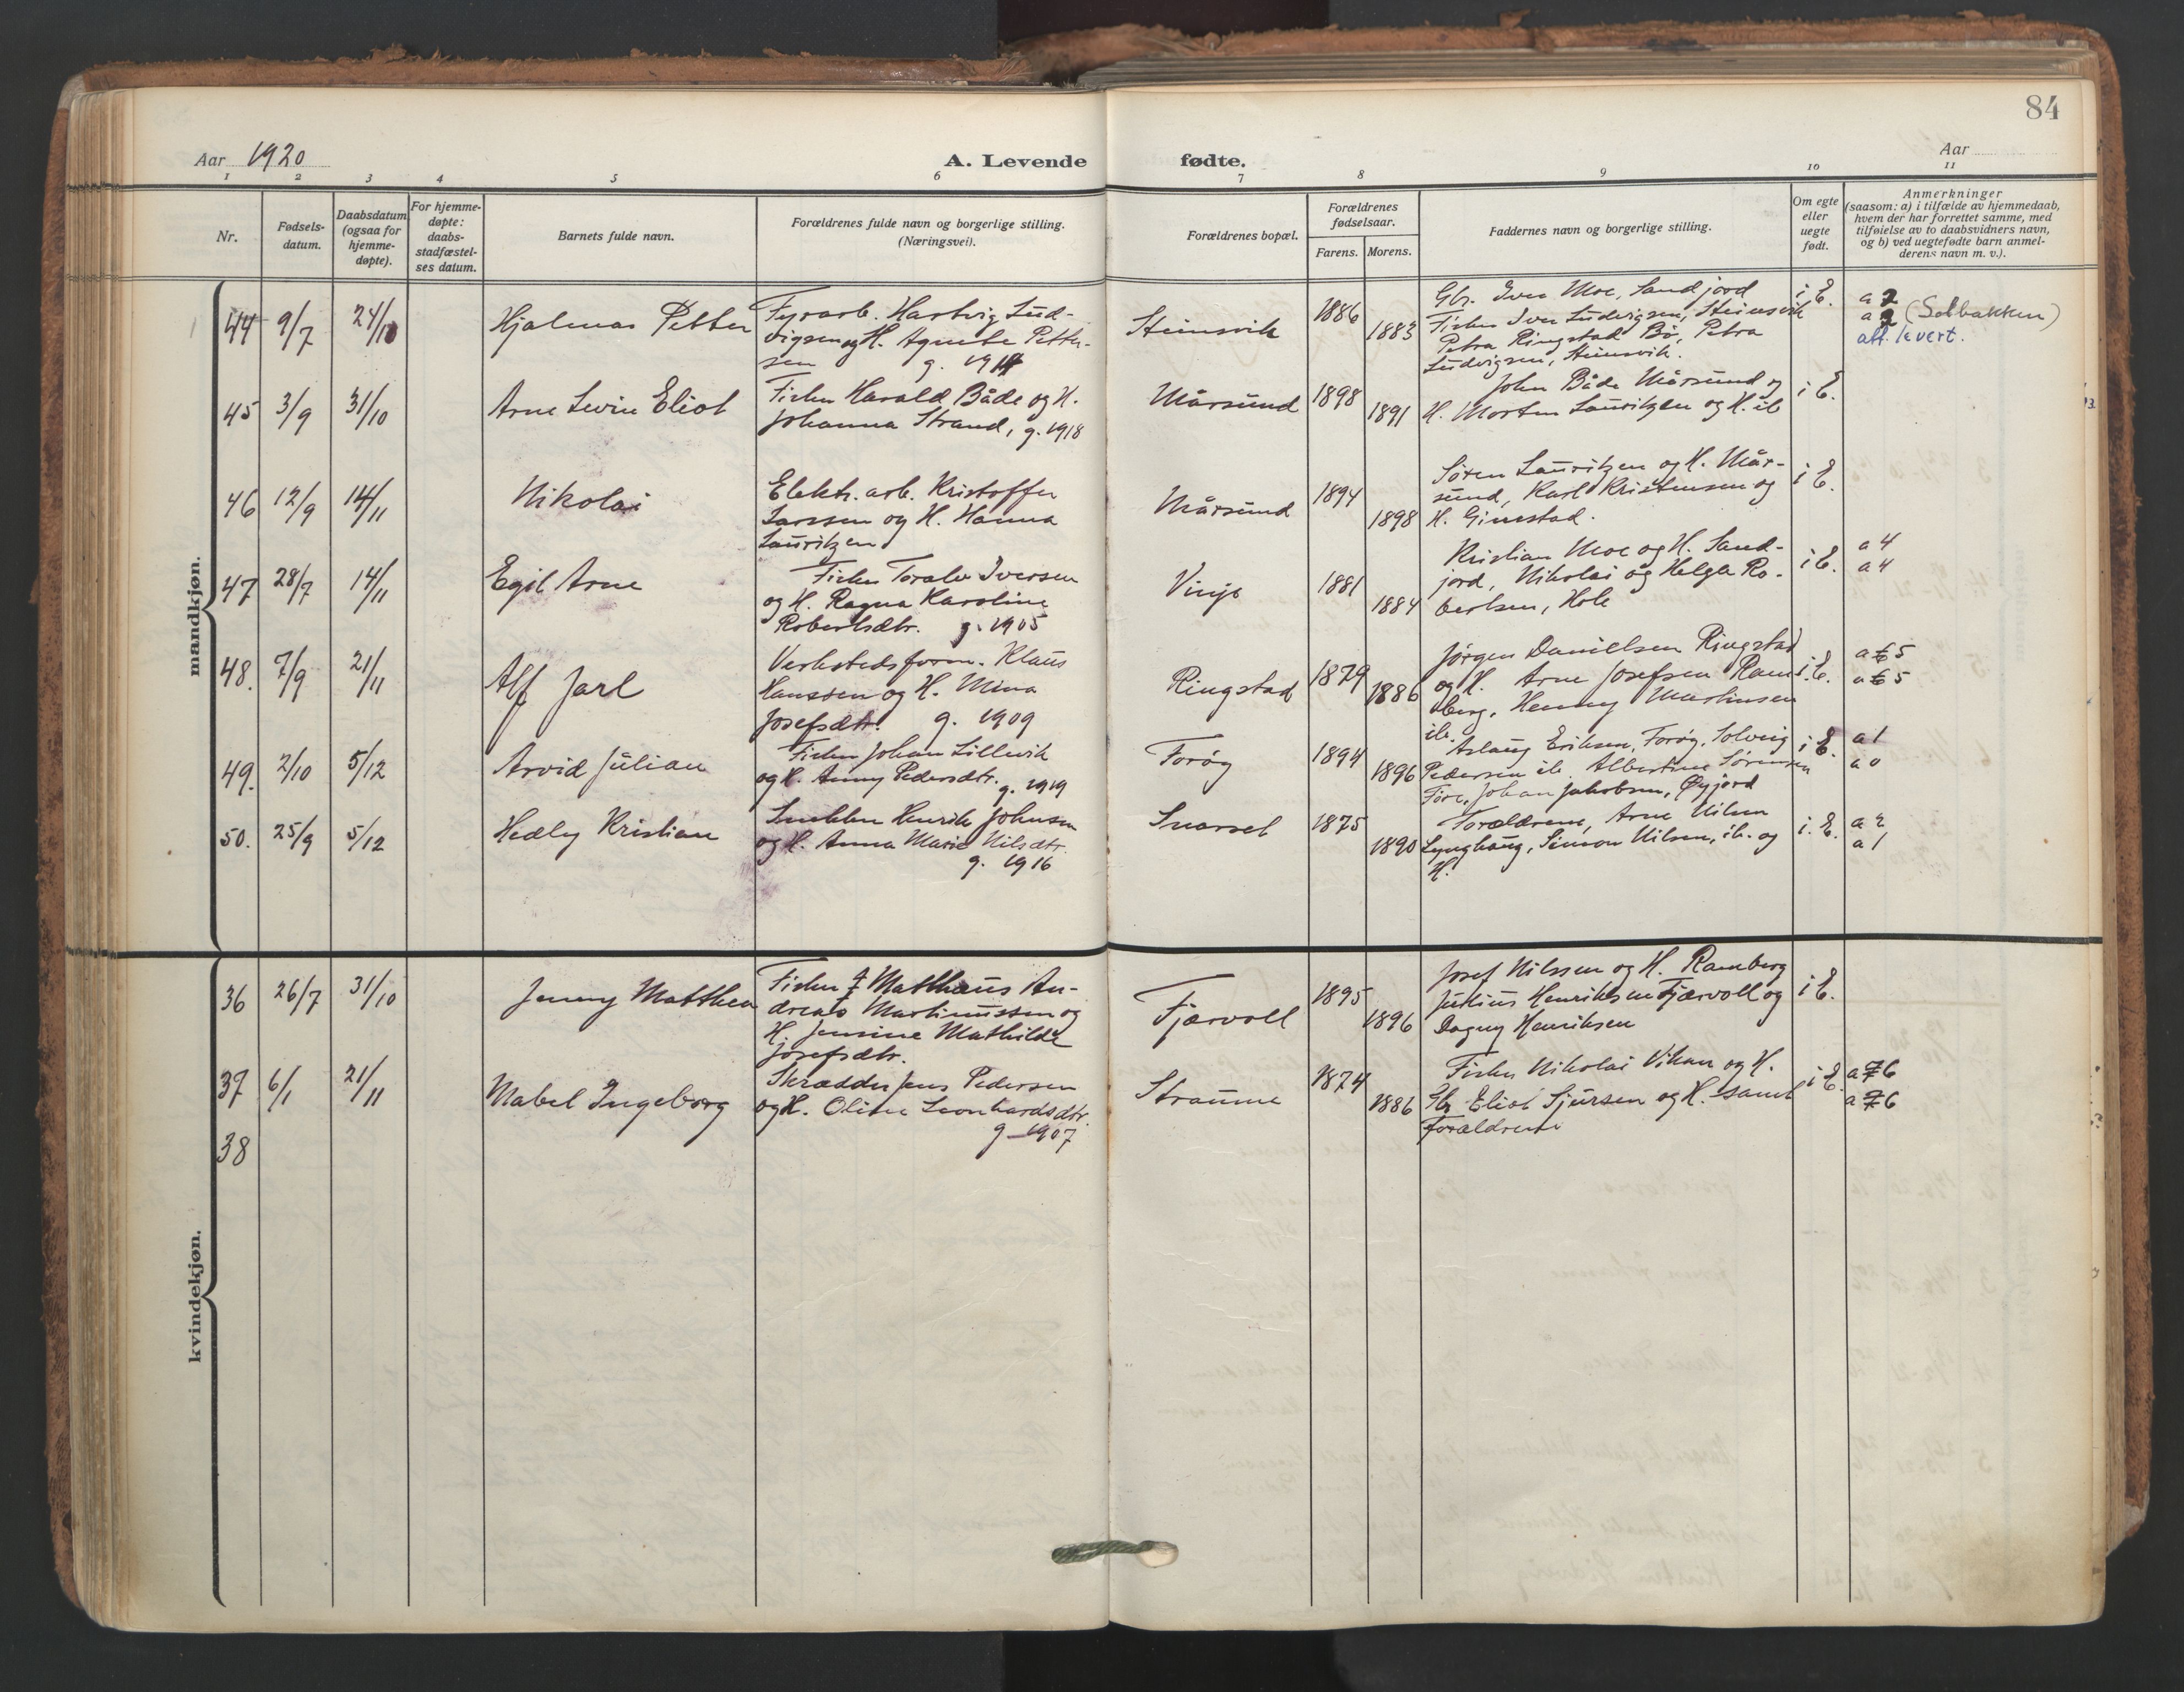 84
Aar 1920
A. Levende fødte.
Aar
1 2 3 4 5 6 7 8 9 10 11
Nr.
Fødsels-
datum.
Daabsdatum
(ogsaa for
hjemme-
døpte).
For hjemme-
døpte:
daabs-
stadfæstel-
ses datum.
Barnets fulde navn.
Forældrenes fulde navn og borgerlige stilling.
(Næringsvei).
Forældrenes bopæl.
Forældrenes
fødselsaar.
Farens. Morens.
Faddernes navn og borgerlige stilling.
Om egte
eller
uegte
født.
Anmerkninger
(saasom: a) i tilfælde av hjemmedaab,
hvem der har forrettet samme, med
tilføielse av to daabsvidners navn,
og b) ved uegtefødte barn anmel-
derens navn m. v.).
mandkjøn.
44 9/7 24/10
Hjalmar Petter
Fyrarb. Hartvig Lud-
vigsen og H. Agnete Petter-
sen g. 1914
Steinsvik
1886
1883
Gbr. Iver Moe, Sandjord
Fisker Iver Ludvigsen, Steinsvik
Petra Ringstad Bø, Petra
Ludvigsen, Steinsvik.
i E.
a 2
a 2 (Solbakken)
att. levert.
45 3/9 31/10
Arne Levin Eliot
Fisker Harald Både og H.
Johanna Strand, g. 1918
Mårsund
1898
1891
John Både Mårsund og
H. Morten Lauritzen og H. ib
i E.
46 12/9 14/11
Nikolai
Elektr. arb. Kristoffer
Larssen og H. Hanna
Lauritzen
Mårsund
1894
1898
Søren Lauritzen og H. Mår-
sund, Karl Kristensen og
H. Gimstad.
i E.
47 28/7 14/11
Egil Arne
Fisker Toralv Iversen
og H. Ragna Karoline
Robertsdtr. g. 1905
Vinje
1881
1884
Kristian Moe og H. Sand-
jord, Nikolai og Helga Ro-
bertsen, Hole
i E.
a 4
a 4
48. 7/9 21/11
Alf Jarl
Verkstedsform. Klaus
Hanssen og H. Mina
Josefsdtr. g. 1909
Ringstad
1879
1886
Jørgen Daniellsen Ringstad
og H. Arne Josefsen Ram-
berg, Henny Martinsen
ib.
i E.
a 6 5
a 6 5
49. 2/10 5/12
Arvid Julian
Fisker Johan Lillevik
og H. Anny Pedersdtr. g. 1919
Forøy
1894
1896
Aslaug Eriksen, Forøy, Solveig
Pedersen ib. Albertine Sørensen
Føre, Johan Jakobsen, Øyjord
i E.
a 1
a 0
50. 25/9 5/12
Hedly Kristian
Snekker Henrik Johnsen
og H. Anna Marie Nilsdtr.
g. 1916
Snarset
1875
1890
Forældrene, Arne Nilsen
Lynghaug, Simon Nilsen, ib. og
H.
i. E.
a 2
a 1
kvindekjøn.
36 26/7 31/10
Jenny Matthea
Fisker Matthæus An-
dreas Martinussen og
H. Jensine Mathilde
Josefsdtr.
Fjærvoll
1895
1896
Josef Nilssen og H. Ramberg
Julius Henriksen Fjærvoll og
Dagny Henriksen
i E.
37 6/1 21/11
Mabel Ingeborg
Skrædder Jens Pedersen
og H. Oline Leonhardsdtr.
g. 1907
Straume
1874
1886
Fisker Nikolai Vikan og H.
Gbr. Eliot Sjursen og H. samt
Forældrene
i E.
a 7 6
a 7 6
38